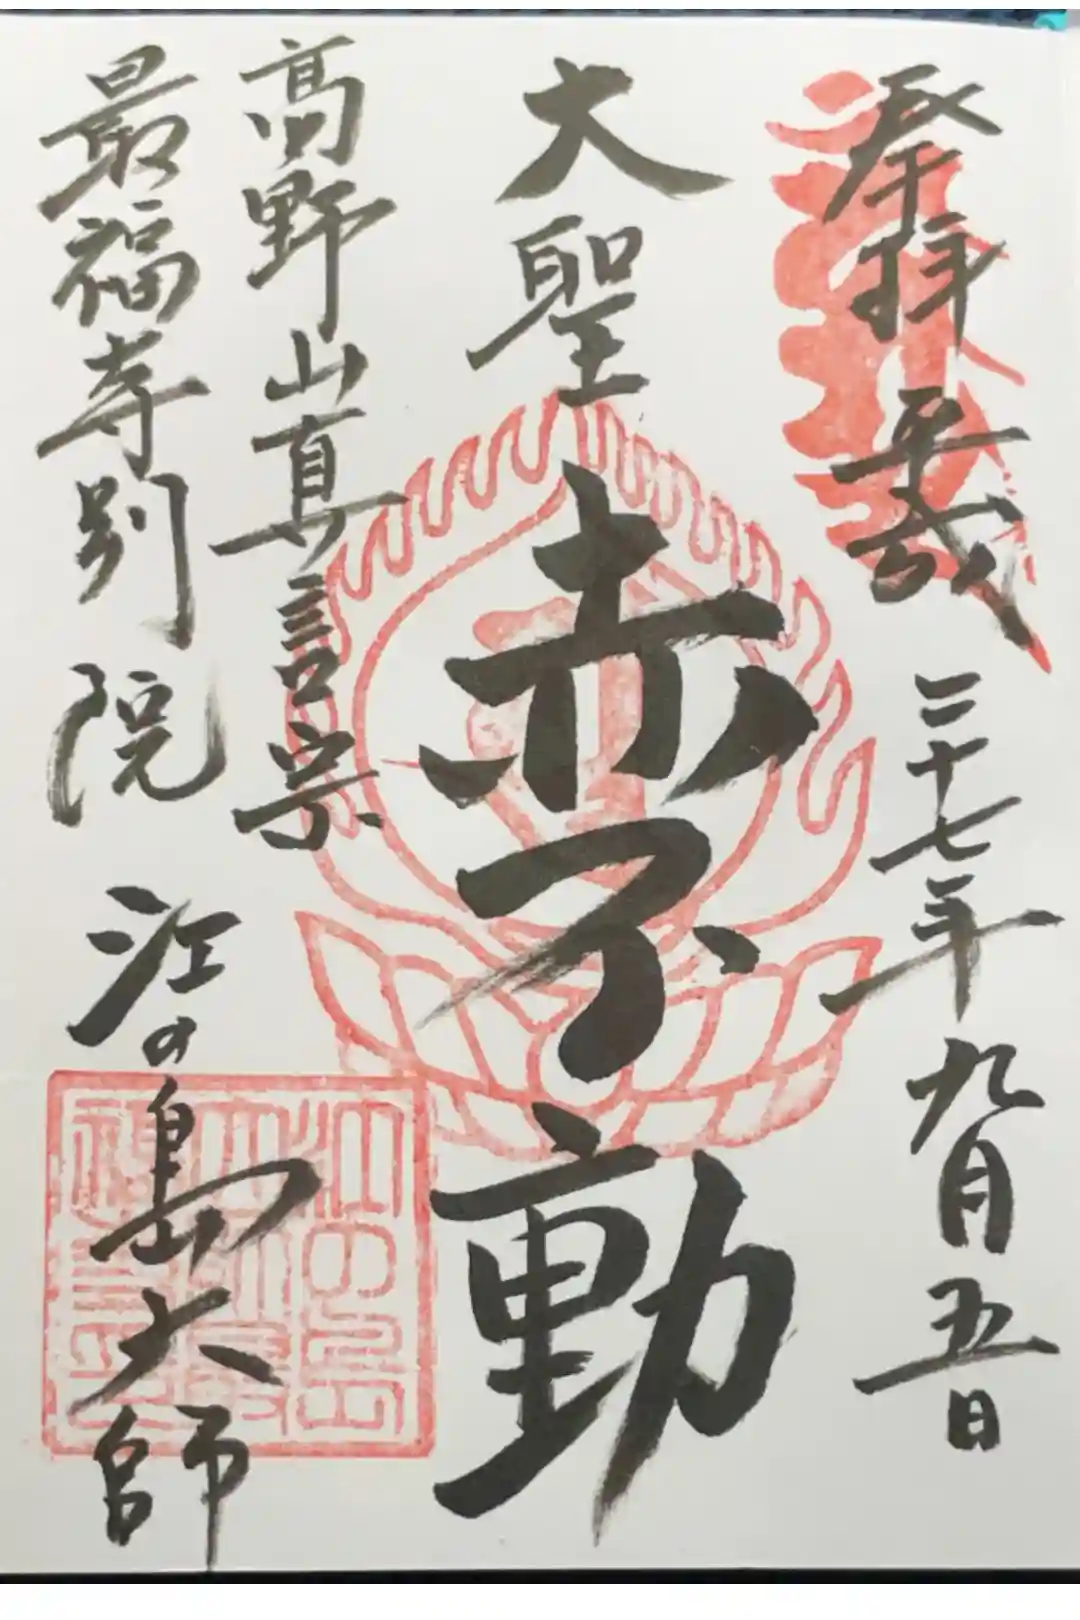 奉拝 平成二十七年九月五日
大聖
赤不動
高野山真言宗
最福寺別院 江の島大師